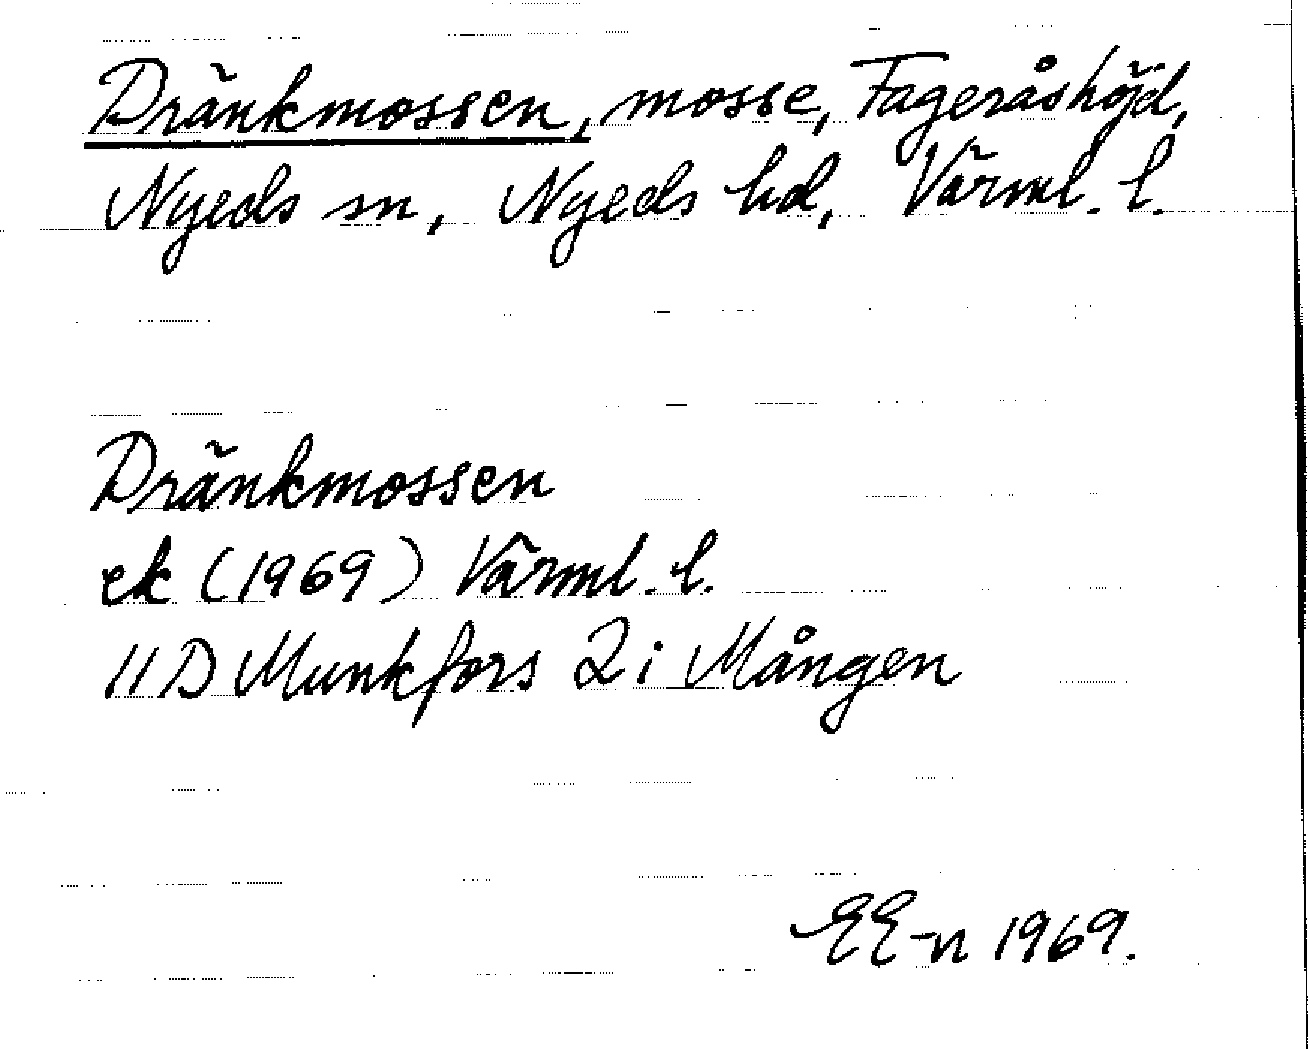 Dränkmossen, mosse, Fageråshöjd,
Nyeds sn, Nyeds hd, Värml. l.
Dränkmossen
ek (1969) Värml. l.
11 D Munkfors 2 i Mången
EE-n 1969.